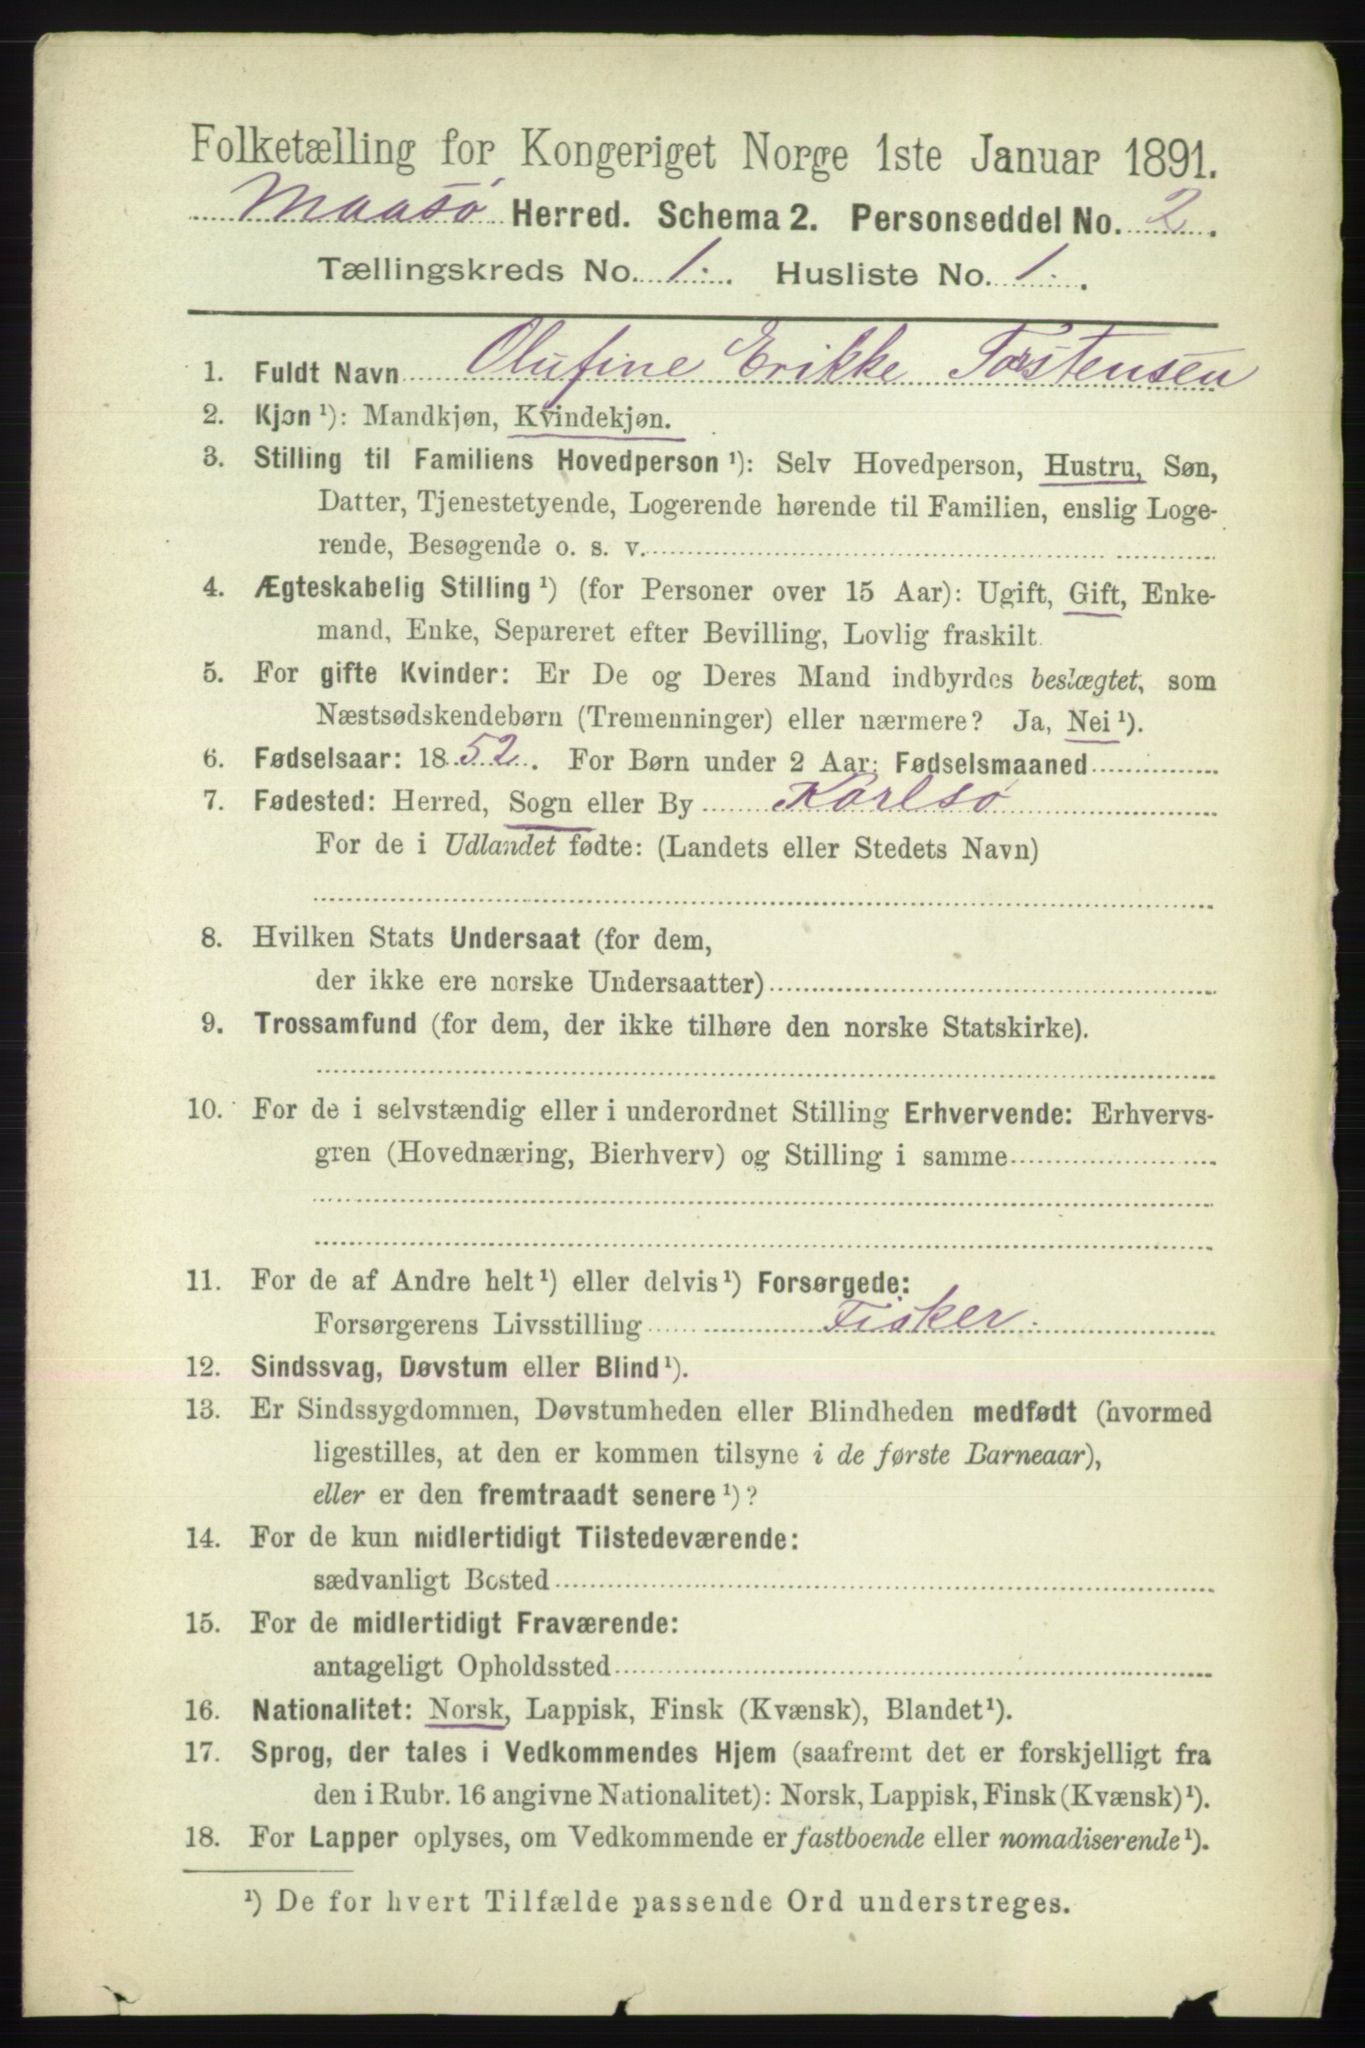 Folketælling for Kongeriget Norge 1ste Januar 1891.
Maasø Herred. Schema 2. Personseddel No. 2.
Tællingskreds No. 1. Husliste No. 1.
1. Fuldt Navn Olufine Erikke Torstensen
2. Kjøn ¹): Mandkjøn, Kvindekjøn.
3. Stilling til Familiens Hovedperson ¹): Selv Hovedperson, Hustru, Søn,
Datter, Tjenestetyende, Logerende hørende til Familien, enslig Loge-
rende, Besøgende o. s. v.
4. Ægteskabelig Stilling ¹) (for Personer over 15 Aar): Ugift, Gift, Enke-
mand, Enke, Separeret efter Bevilling, Lovlig fraskilt.
5. For gifte Kvinder: Er De og Deres Mand indbyrdes beslægtet, som
Næstsødskendebørn (Tremenninger) eller nærmere? Ja, Nei ¹).
6. Fødselsaar: 1852. For Børn under 2 Aar: Fødselsmaaned
7. Fødested: Herred, Sogn eller By Karlsø
For de i Udlandet fødte: (Landets eller Stedets Navn)
8. Hvilken Stats Undersaat (for dem,
der ikke ere norske Undersaatter)
9. Trossamfund (for dem, der ikke tilhøre den norske Statskirke).
10. For de i selvstændig eller i underordnet Stilling Erhvervende: Erhvervs-
gren (Hovednæring, Bierhverv) og Stilling i samme
11. For de af Andre helt ¹) eller delvis ¹) Forsørgede:
Forsørgerens Livsstilling Fisker.
12. Sindssvag, Døvstum eller Blind ¹).
13. Er Sindssygdommen, Døvstumheden eller Blindheden medfødt (hvormed
ligestilles, at den er kommen tilsyne i de første Barneaar),
eller er den fremtraadt senere ¹)?
14. For de kun midlertidigt Tilstedeværende:
sædvanligt Bosted
15. For de midlertidigt Fraværende:
antageligt Opholdssted
16. Nationalitet: Norsk, Lappisk, Finsk (Kvænsk), Blandet ¹).
17. Sprog, der tales i Vedkommendes Hjem (saafremt det er forskjelligt fra
den i Rubr. 16 angivne Nationalitet): Norsk, Lappisk, Finsk (Kvænsk) ¹).
18. For Lapper oplyses, om Vedkommende er fastboende eller nomadiserende ¹).
¹) De for hvert Tilfælde passende Ord understreges.